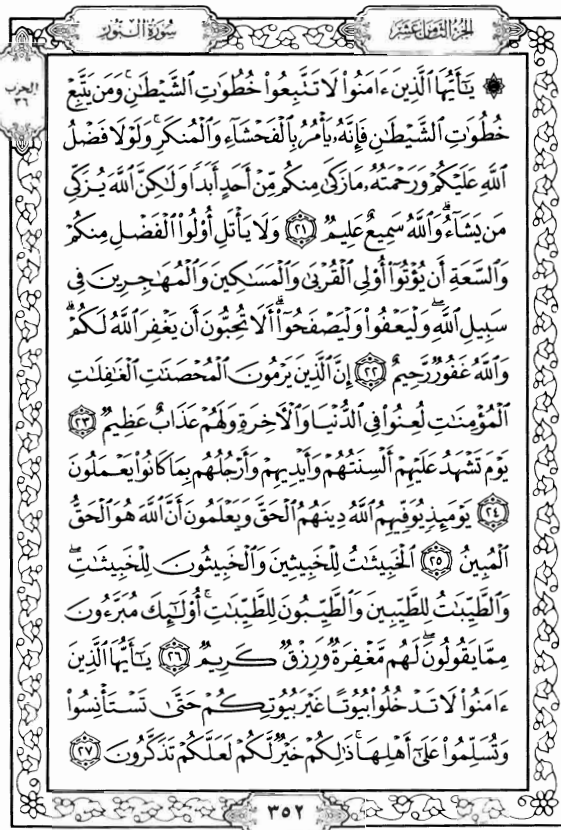 الجزء الثامن عشر
سورة النور
الحزب
٣٦
۞ يَٰٓأَيُّهَا ٱلَّذِينَ ءَامَنُوا۟ لَا تَتَّبِعُوا۟ خُطُوَٰتِ ٱلشَّيْطَٰنِ ۚ وَمَن يَتَّبِعْ
خُطُوَٰتِ ٱلشَّيْطَٰنِ فَإِنَّهُۥ يَأْمُرُ بِٱلْفَحْشَآءِ وَٱلْمُنكَرِ ۚ وَلَوْلَا فَضْلُ
ٱللَّهِ عَلَيْكُمْ وَرَحْمَتُهُۥ مَا زَكَىٰ مِنكُم مِّنْ أَحَدٍ أَبَدًا وَلَٰكِنَّ ٱللَّهَ يُزَكِّى
مَن يَشَآءُ ۗ وَٱللَّهُ سَمِيعٌ عَلِيمٌ ٢١ وَلَا يَأْتَلِ أُو۟لُوا۟ ٱلْفَضْلِ مِنكُمْ
وَٱلسَّعَةِ أَن يُؤْتُوٓا۟ أُو۟لِى ٱلْقُرْبَىٰ وَٱلْمَسَٰكِينَ وَٱلْمُهَٰجِرِينَ فِى
سَبِيلِ ٱللَّهِ ۖ وَلْيَعْفُوا۟ وَلْيَصْفَحُوٓا۟ ۗ أَلَا تُحِبُّونَ أَن يَغْفِرَ ٱللَّهُ لَكُمْ ۗ
وَٱللَّهُ غَفُورٌ رَّحِيمٌ ٢٢ إِنَّ ٱلَّذِينَ يَرْمُونَ ٱلْمُحْصَنَٰتِ ٱلْغَٰفِلَٰتِ
ٱلْمُؤْمِنَٰتِ لُعِنُوا۟ فِى ٱلدُّنْيَا وَٱلْءَاخِرَةِ وَلَهُمْ عَذَابٌ عَظِيمٌ ٢٣
يَوْمَ تَشْهَدُ عَلَيْهِمْ أَلْسِنَتُهُمْ وَأَيْدِيهِمْ وَأَرْجُلُهُم بِمَا كَانُوا۟ يَعْمَلُونَ
٢٤ يَوْمَئِذٍ يُوَفِّيهِمُ ٱللَّهُ دِينَهُمُ ٱلْحَقَّ وَيَعْلَمُونَ أَنَّ ٱللَّهَ هُوَ ٱلْحَقُّ
ٱلْمُبِينُ ٢٥ ٱلْخَبِيثَٰتُ لِلْخَبِيثِينَ وَٱلْخَبِيثُونَ لِلْخَبِيثَٰتِ ۖ
وَٱلطَّيِّبَٰتُ لِلطَّيِّبِينَ وَٱلطَّيِّبُونَ لِلطَّيِّبَٰتِ ۚ أُو۟لَٰٓئِكَ مُبَرَّءُونَ
مِمَّا يَقُولُونَ ۖ لَهُم مَّغْفِرَةٌ وَرِزْقٌ كَرِيمٌ ٢٦ يَٰٓأَيُّهَا ٱلَّذِينَ
ءَامَنُوا۟ لَا تَدْخُلُوا۟ بُيُوتًا غَيْرَ بُيُوتِكُمْ حَتَّىٰ تَسْتَأْنِسُوا۟
وَتُسَلِّمُوا۟ عَلَىٰٓ أَهْلِهَا ۚ ذَٰلِكُمْ خَيْرٌ لَّكُمْ لَعَلَّكُمْ تَذَكَّرُونَ ٢٧
٣٥٢